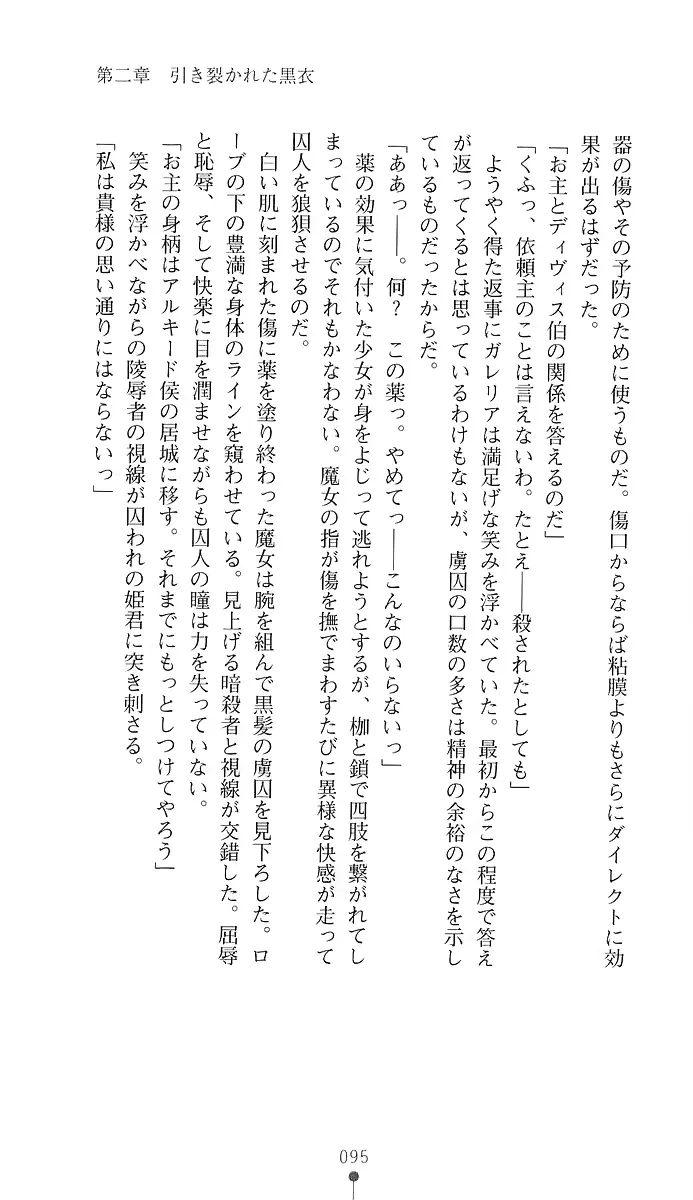 第二章　引き裂かれた黒衣
器の傷やその予防のために使うものだ。傷口からならば粘膜よりもさらにダイレクトに効
果が出るはずだった。
「お主とディヴィス伯の関係を答えるのだ」
「くふっ、依頼主のことは言えないわ。たとえ――殺されたとしても」
ようやく得た返事にガレリアは満足げな笑みを浮かべていた。最初からこの程度で答え
が返ってくるとは思っているわけもないが、虜囚の口数の多さは精神の余裕のなさを示し
ているものだったからだ。
「ああっ――。何？　この薬っ。やめてっ――こんなのいらないっ」
薬の効果に気付いた少女が身をよじって逃れようとするが、枷と鎖で四肢を繋がれてし
まっているのでそれもかなわない。魔女の指が傷を撫でまわすたびに異様な快感が走って
囚人を狼狽させるのだ。
白い肌に刻まれた傷に薬を塗り終わった魔女は腕を組んで黒髪の虜囚を見下ろした。ロ
ーブの下の豊満な身体のラインを窺わせている。見上げる暗殺者と視線が交錯した。屈辱
と恥辱、そして快楽に目を潤ませながらも囚人の瞳は力を失っていない。
「お主の身柄はアルキード侯の居城に移す。それまでにもっとしつけてやろう」
笑みを浮かべながらの陵辱者の視線が囚われの姫君に突き刺さる。
「私は貴様の思い通りにはならないっ」
095